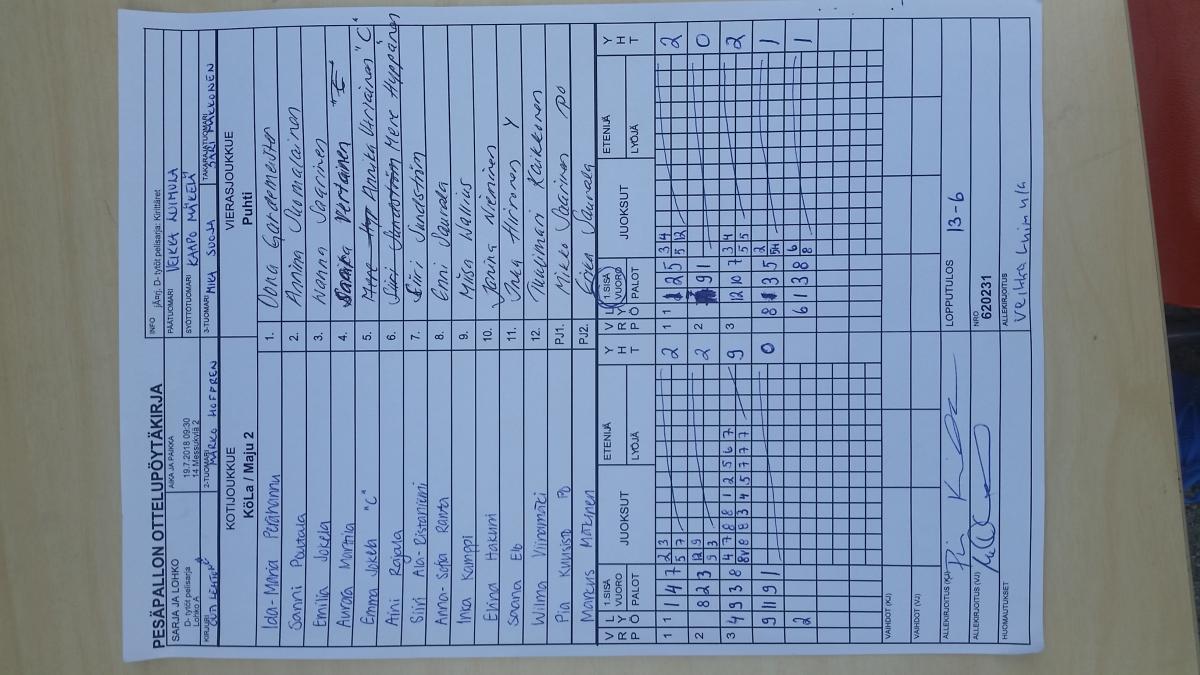 PESÄPALLON OTTELUPÖYTÄKIRJA
SARJA JA LOHKO
D- tytöt pelisarja
Lohko A
AIKA JA PAIKKA
19.7.2018 09:30
14 Messukylä 2
INFO jÄ=rj. D- tytöt pelisarja: Kirittäret
PÄÄTUOMARI VEIKKA LUIMULA
SYÖTTÖTUOMARI KAAPO MÄKELÄ
KIRJURI OUTI LEHTO
2-TUOMARI MARKO HOFFREN
3-TUOMARI MIKA SUOJA
TAKARAJATUOMARI JARI MÄKKONEN
KOTIJOUKKUE
KöLa / Maju 2
VIERASJOUKKUE
Puhti
Ida-Maria Perähannu 1. Oona Gardemeister
Sanni Pautala 2. Anniina Suomalainen
Emilia Jokela 3. Wanna Saarinen
Aurora Marttila 4. Vertainen
Emma Jokela "C" 5. Annika Virjainen "C"
Aini Rajala 6. Mere Hyppänen
Siiri Ala-Ristaniemi 7. Siiri Sundström
Anna-Sofia Ranta 8. Enni Saurala
Inka Kamppi 9. Miisa Wallius
Elviina Hakuni 10. Janina Nieminen
Saana Elo 11. Inka Hiironen Y
Wilma Viinamäki 12. Tuulimari Kaikkonen
Pia Kuusisto PO PJ1. Mikko Saarinen PO
Marcus Mäkinen PJ2. Erika Saurala
V R P L Y Ö 1.SISÄ VUORO PALOT JUOKSUT ETENIJÄ LYÖJÄ Y H T
V R P L Y Ö 1.SISÄ VUORO PALOT JUOKSUT ETENIJÄ LYÖJÄ Y H T
1 1 1 4 7 2 3 2
5 7
1 1 2 5 3 4 2
5 12
2 8 2 3 12 9 2
9 3
2 9 1 0
3 4 9 3 8 4 7 8 8 1 2 5 6 7 9
8 8 8 3 4 5 7 7 7
3 12 10 7 3 4 2
5 5
9 11 9 1 0
8 3 5 2 1
2
6 1 3 8 6 1
8
VAIHDOT (KJ)
VAIHDOT (VJ)
ALLEKIRJOITUS (KJ)
LOPPUTULOS 13-6
ALLEKIRJOITUS (VJ)
NRO
620231
HUOMAUTUKSET
ALLEKIRJOITUS
Veikka Luimula